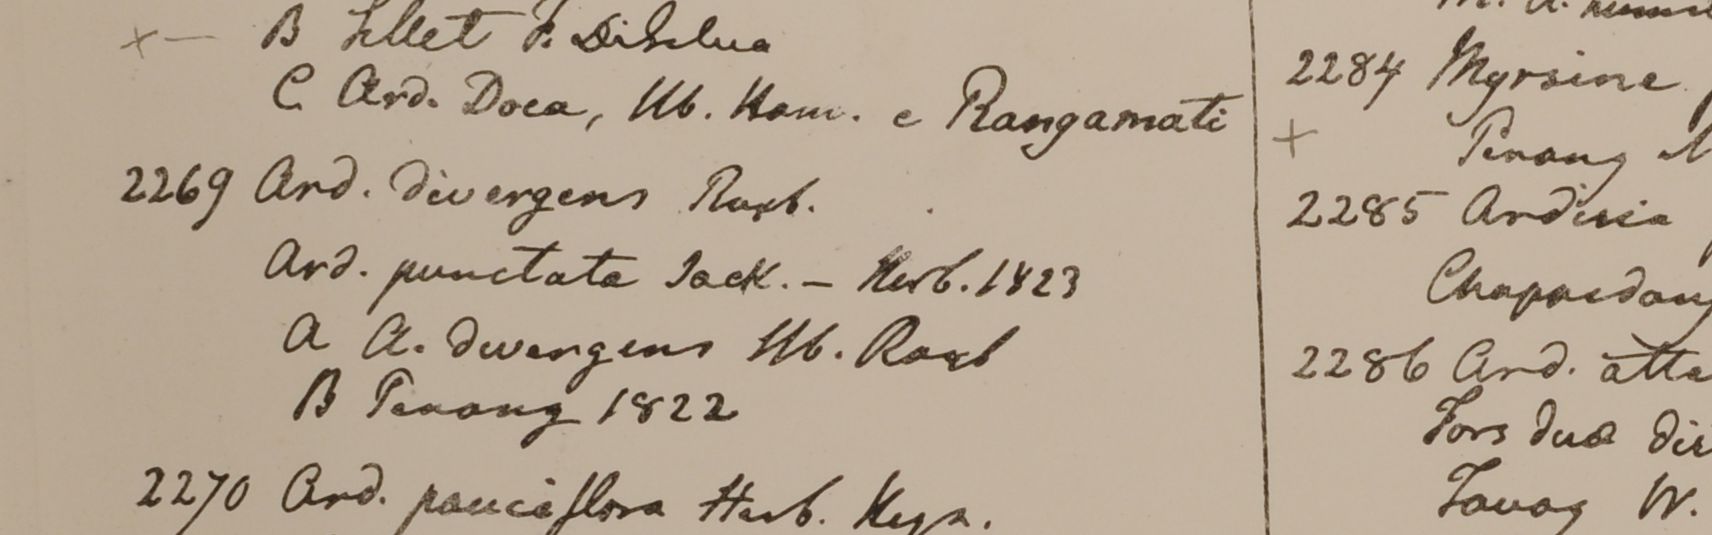 B Sillet F. DeSilva
C Ard. Doca, Hb. Ham. e Rangamati
2269 Ard. divergens Roxb.
Ard. punctata Jack. – Herb. 1823
A A. divergens Hb. Roxb
B Penang 1822
2270 Ard. pauciflora Herb. Heyn.
2284 Myrsine
Penang
2285 Ardisia
2286 Ard. atte
Fors duæ dis
Tavoy W.